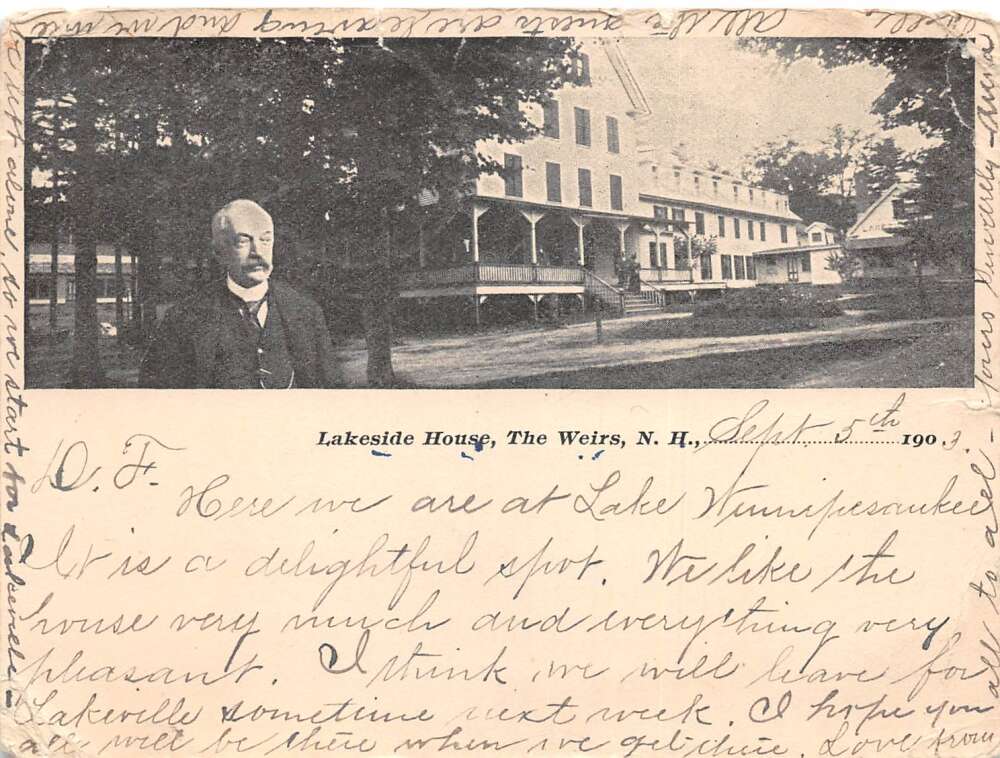 Lakeside House, The Weirs, N. H., Sept. 5th 1903.
D. F.
Here we are at Lake Winnipesaukee
It is a delightful spot. We like the
house very much and everything very
pleasant. I think we will leave for
Lakeville sometime next week. I hope you
all will be there when we get there. Love from
all to all -
Yours Sincerely
Well all the guests are leaving and we will
be left alone, so we start for Lakeville -